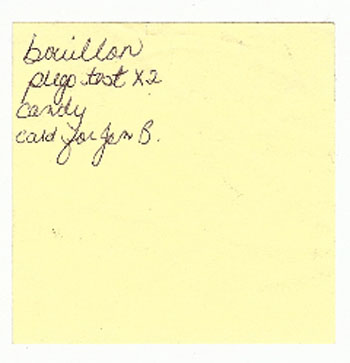 bouillon
prego test x2
candy
card for Jan B.